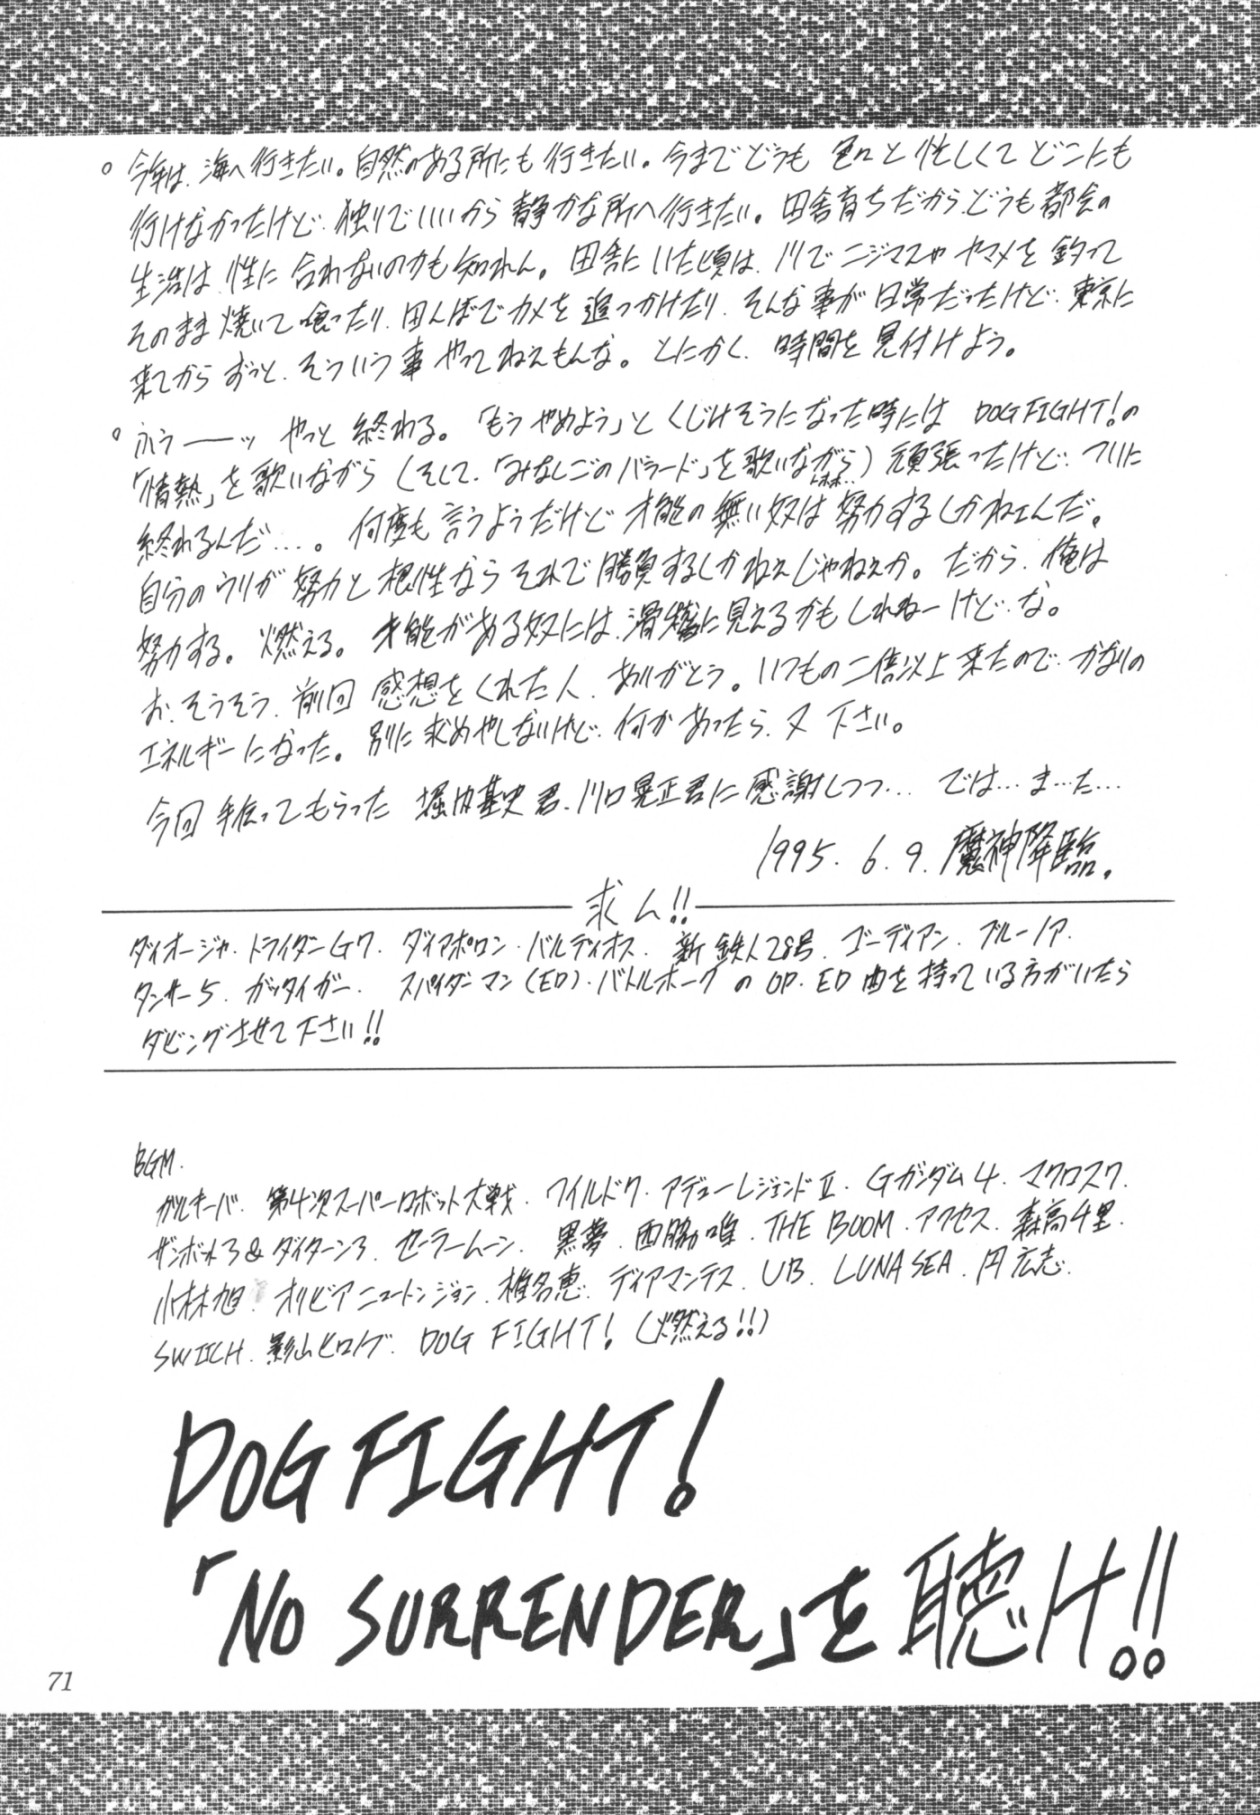 ○ 今年は、海へ行きたい。自然のある所にも行きたい。今までどうも色々と忙しくてどこにも
行けなかったけど、独りでいいから静かな所へ行きたい。田舎育ちだからどうも都会の
生活は、性に合わないのかも知れん。田舎にいた頃は、川でニジマスやヤマメを釣って
そのまま焼いて喰ったり、田んぼでカメを追っかけたり、そんな事が日常だったけど、東京に
来てからずっと、そういう事やってねえもんな。とにかく、時間を見付けよう。
○ ふうーーッ やっと終わる。「もうやめよう」とくじけそうになった時には DOG FIGHT!の
「情熱」を歌いながら(そして、「みなしごのバラード」を歌いながら)頑張ったけど、ついに
終われるんだ…。何度も言うようだけど才能の無い奴は努力するしかねェんだ。
自分のウリが努力と根性ならそれで勝負するしかねえじゃねえか。だから、俺は
努力する。燃える。才能がある奴には、滑稽に見えるかもしれねーけど、な。
お、そうそう、前回感想をくれた人、ありがとう。いつもの二倍以上来たので、かなりの
エネルギーになった。別に求めやしないけど、何かあったら、又下さい。
今回手伝ってもらった 堀内基史君、川口晃正君に感謝しつつ… では…ま…た…
1995. 6. 9. 魔神降臨.
求ム!!
ダイオージャ・トライダーG7・ダイアポロン・バルディオス・新鉄人28号・ゴーディアン・ブルーノア・
タンサー5・ガッタイガー・スパイダーマン(ED)・バトルホークのOP・ED曲を持っている方がいたら
ダビングさせて下さい!!
BGM.
ガルキーバ・第4次スーパーロボット大戦・ワイルド7・アデューレジェンドⅡ・Gガンダム4・マクロス7・
ザンボット3&ダイターン3・セーラームーン・黒夢・西脇唯・THE BOOM・アクセス・森高千里・
小林旭・オリビアニュートンジョン・椎名恵・ディアマンテス・UB・LUNA SEA・円広志・
SWITCH・影山ヒロノブ・DOG FIGHT!(燃える!!)
DOG FIGHT!
「NO SURRENDER」を聴け!!
71